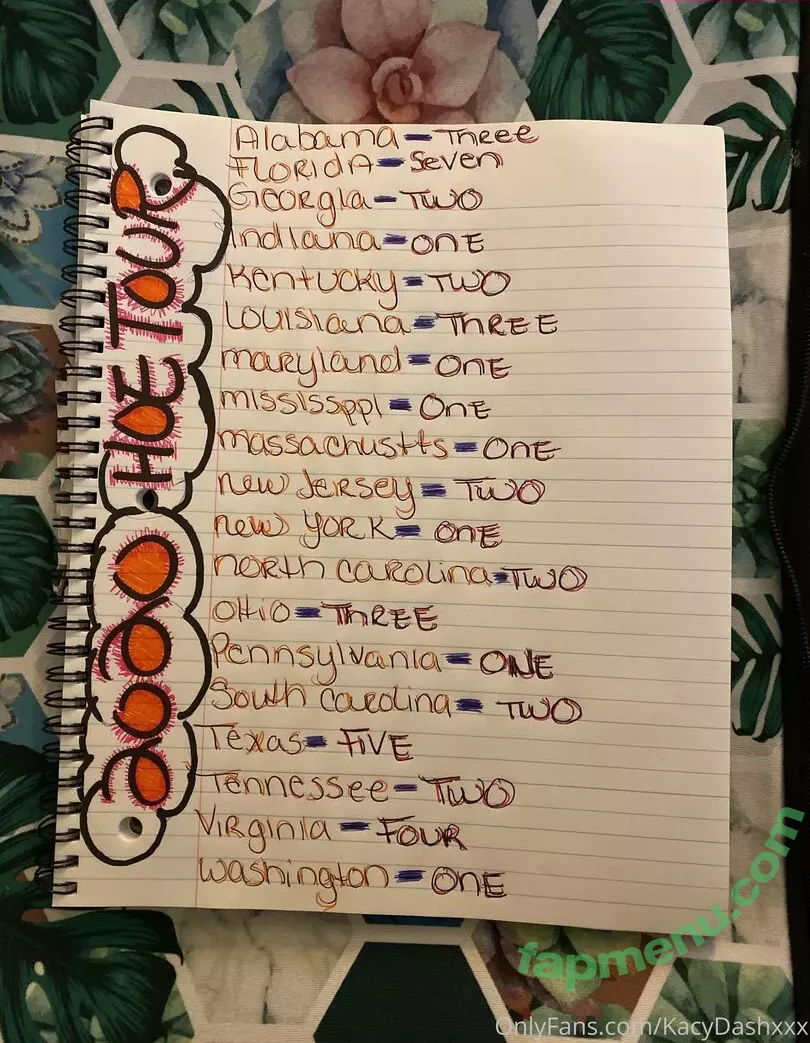 2020 HOE TOUR
Alabama = Three
FLORIDA = Seven
Georgia = TWO
Indiana = ONE
Kentucky = TWO
Louisiana = THREE
maryland = ONE
mississppi = ONE
massachustts = ONE
new Jersey = TWO
new YORK = ONE
north carolina = TWO
Ohio = THREE
Pennsylvania = ONE
South Carolina = TWO
Texas = FIVE
Tennessee = TWO
Virginia = FOUR
Washington = ONE
fapmenu.com
OnlyFans.com/KacyDashxxx